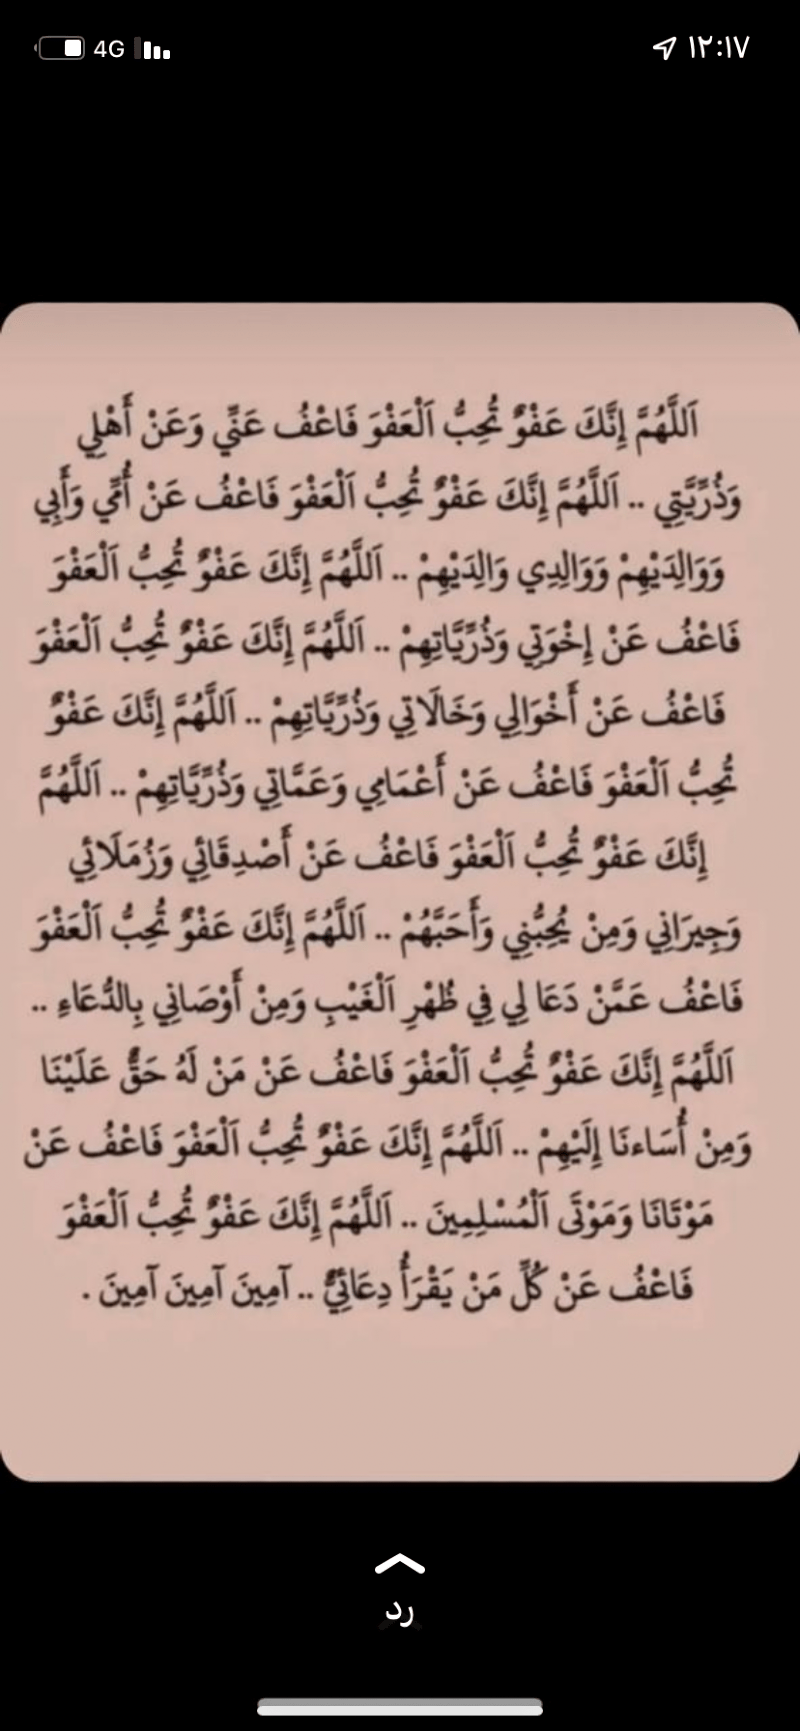 4G ١٢:١٧
اَللَّهُمَّ إِنَّكَ عَفْوٌ تُحِبُّ اَلْعَفْوَ فَاعْفُ عَنِّي وَعَنْ أَهْلِي
وَذُرِّيَّتِي .. اَللَّهُمَّ إِنَّكَ عَفْوٌ تُحِبُّ اَلْعَفْوَ فَاعْفُ عَنْ أُمِّي وَأَبِي
وَوَالِدَيْهِمْ وَوَالِدِي وَالِدَيْهِمْ .. اَللَّهُمَّ إِنَّكَ عَفْوٌ تُحِبُّ اَلْعَفْوَ
فَاعْفُ عَنْ إِخْوَتِي وَذُرِّيَّاتِهِمْ .. اَللَّهُمَّ إِنَّكَ عَفْوٌ تُحِبُّ اَلْعَفْوَ
فَاعْفُ عَنْ أَخْوَالِي وَخَالَاتِي وَذُرِّيَّاتِهِمْ .. اَللَّهُمَّ إِنَّكَ عَفْوٌ
تُحِبُّ اَلْعَفْوَ فَاعْفُ عَنْ أَعْمَامِي وَعَمَّاتِي وَذُرِّيَّاتِهِمْ .. اَللَّهُمَّ
إِنَّكَ عَفْوٌ تُحِبُّ اَلْعَفْوَ فَاعْفُ عَنْ أَصْدِقَائِي وَزُمَلَائِي
وَجِيرَانِي وَمِنْ يُحِبُّنِي وَأَحَبَّهُمْ .. اَللَّهُمَّ إِنَّكَ عَفْوٌ تُحِبُّ اَلْعَفْوَ
فَاعْفُ عَمَّنْ دَعَا لِي فِي ظُهْرِ اَلْغَيْبِ وَمِنْ أَوْصَانِي بِالدُّعَاءِ ..
اَللَّهُمَّ إِنَّكَ عَفْوٌ تُحِبُّ اَلْعَفْوَ فَاعْفُ عَنْ مَنْ لَهُ حَقٌّ عَلَيْنَا
وَمِنْ أُسَاءنَا إِلَيْهِمْ .. اَللَّهُمَّ إِنَّكَ عَفْوٌ تُحِبُّ اَلْعَفْوَ فَاعْفُ عَنْ
مَوْتَانَا وَمَوْتَى اَلْمُسْلِمِينَ .. اَللَّهُمَّ إِنَّكَ عَفْوٌ تُحِبُّ اَلْعَفْوَ
فَاعْفُ عَنْ كُلِّ مَنْ يَقْرَأُ دِعَائِيٌّ .. آمِينَ آمِينَ آمِينَ .
رد